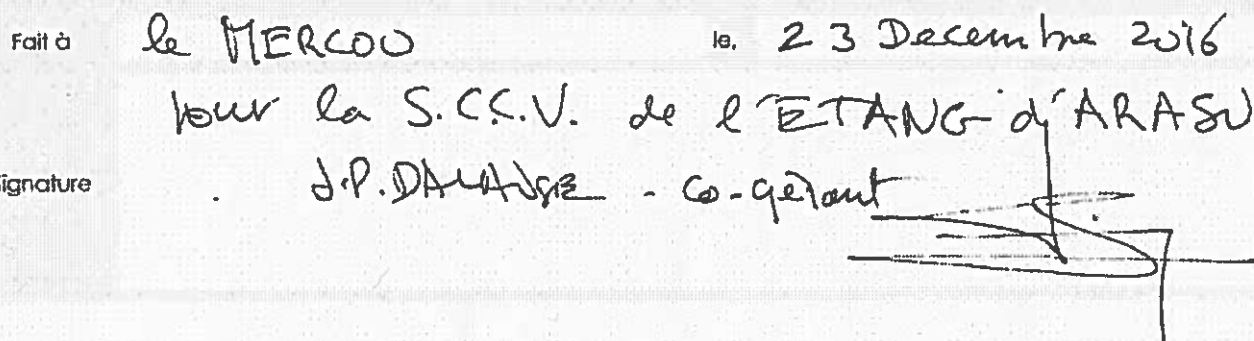 Fait à le MERCOU le, 23 Decembre 2016
pour la S.C.C.V. de l'ETANG d'ARASU
Signature J.P. - co-gérant